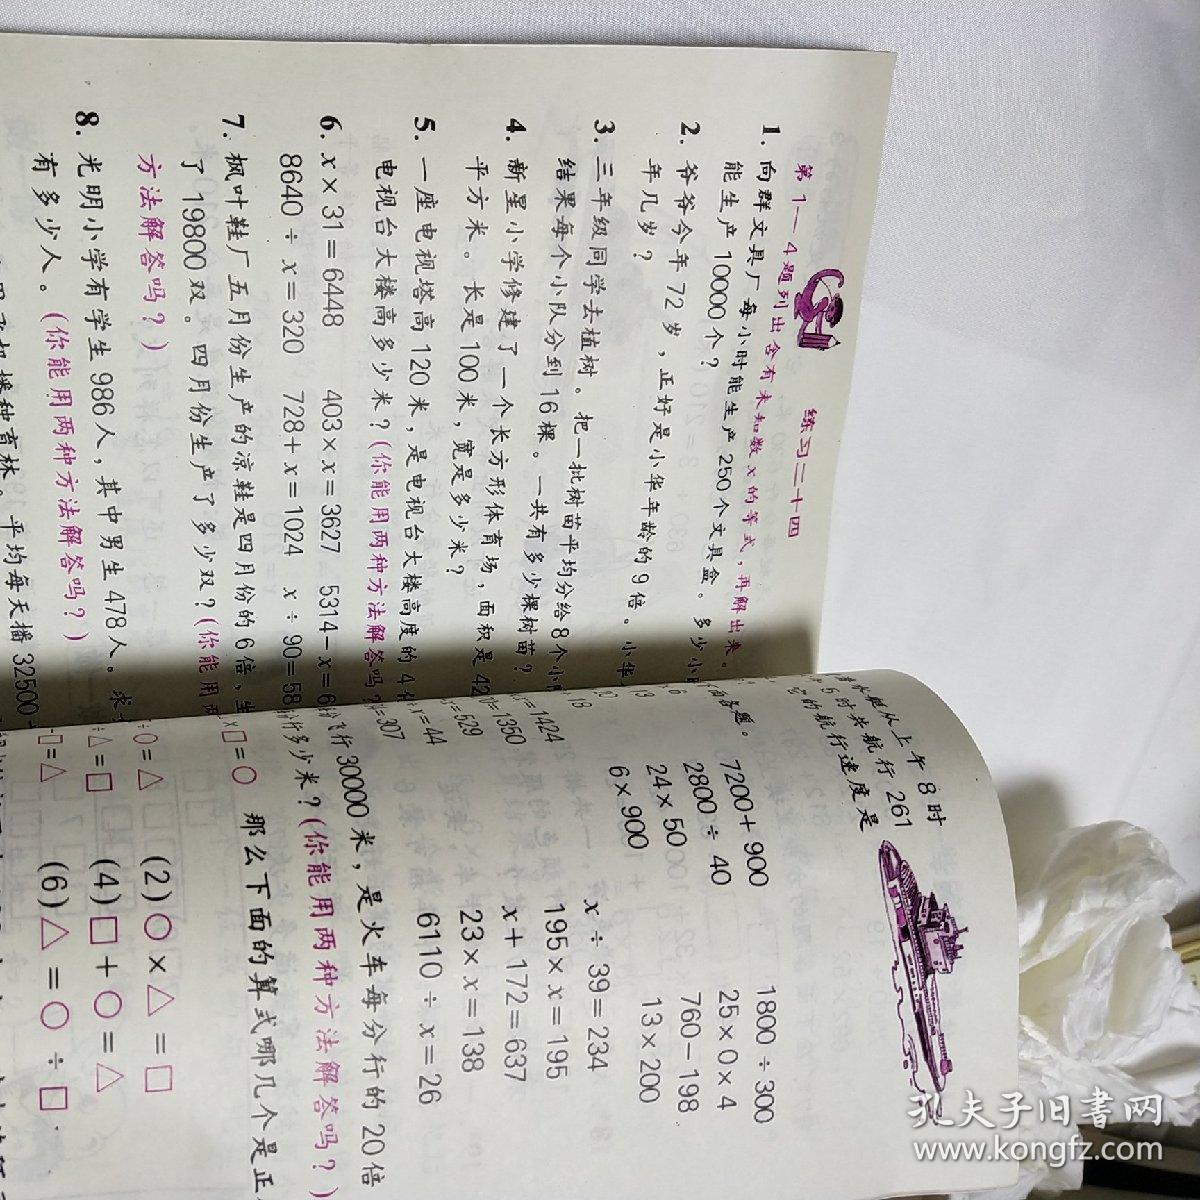 练习二十四
第1—4题列出含有未知数x的等式,再解出来。
1. 向群文具厂每小时能生产250个文具盒。多少小
能生产10000个?
2. 爷爷今年72岁,正好是小华年龄的9倍。小华
年几岁?
3. 三年级同学去植树。把一批树苗平均分给8个小
结果每个小队分到16棵。一共有多少棵树苗?
4. 新星小学修建了一个长方形体育场,面积是42
平方米。长是100米,宽是多少米?
5. 一座电视塔高120米,是电视台大楼高度的4
电视台大楼高多少米?(你能用两种方法解答吗?
6. x×31=6448 403×x=3627 5314-x=6
8640÷x=320 728+x=1024 x÷90=58
7. 枫叶鞋厂五月份生产的凉鞋是四月份的6倍,生
了19800双。四月份生产了多少双?(你能用两
方法解答吗?)
8. 光明小学有学生986人,其中男生478人。求
有多少人。(你能用两种方法解答吗?)
飞机播种育林,平均每天播32500
从上午8时
时共航行261
的航行速度是
各题。
7200+900 1800÷300
2800÷40 25×0×4
24×50 760-198
6×900 13×200
=1424 x÷39=234
=1350 195×x=195
=529 x+172=637
x=44 23×x=138
=307 6110÷x=26
飞行30000米,是火车每分行的20倍
行多少米?(你能用两种方法解答吗?)
×□=○ 那么下面的算式哪几个是正
÷○=△ (2)○×△=□
÷△=□ (4)□+○=△
□=△ (6)△=○÷□
孔夫子旧书网
www.kongfz.com